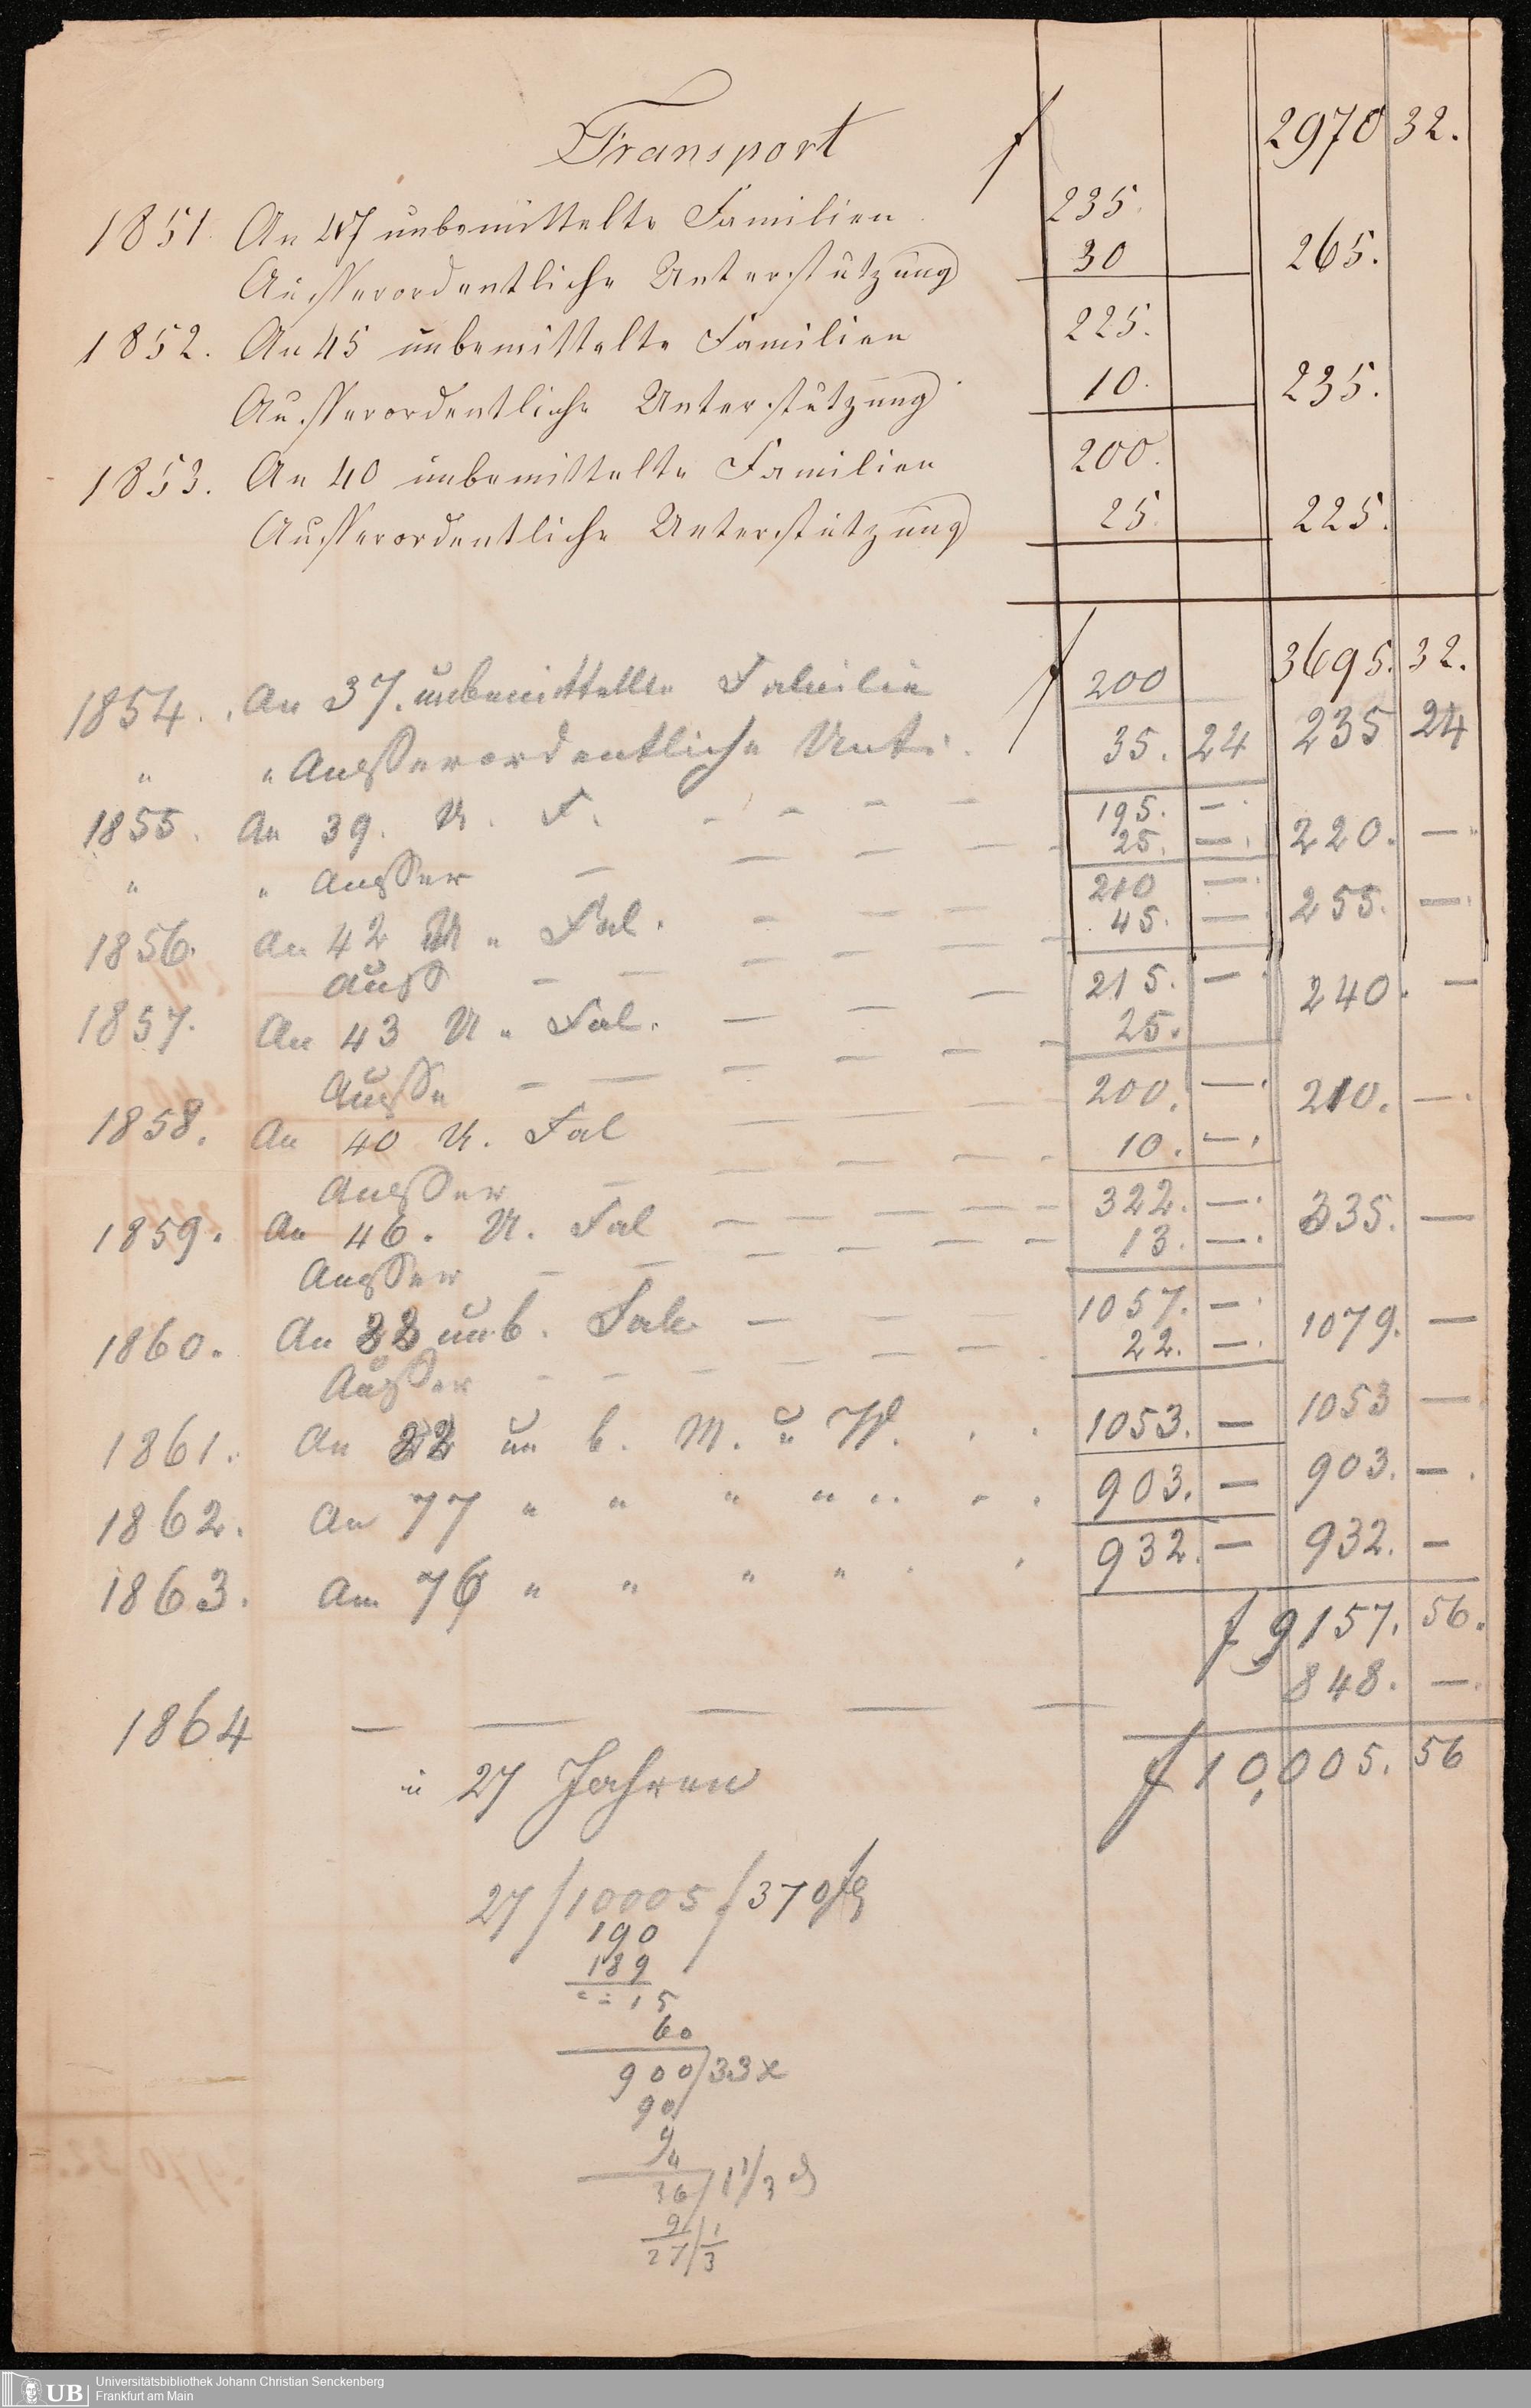 Transport f 2970 32.
1851. An 47 unbemittelte Familien 235.
Ausserordentliche Unterstützung 30 265.
1852. An 45 unbemittelte Familien 225.
Ausserordentliche Unterstützung 10. 235.
1853. An 40 unbemittelte Familien 200.
Ausserordentliche Unterstützung 25. 225.
f 3695. 32.
1854. An 37. unbemittelte Familie 200
" " Ausserordentliche Unt. 35. 24 235 24
1855. An 39. U. F. — — — — 195. —
" " Ausser — — — — 25. — 220. —
1856. An 42 U. Fal. — — — 210 —
Auss — — — — — 45. — 255. —
1857. An 43 U. Fal. — — — 215. — 240. —
Ausse — — — — — — 25.
1858. An 40 U. Fal — — — 200. — 210. —
Ausser — — — — — 10. —
1859. An 46. U. Fal — — — — — 322. — 335. —
Ausser — — — — — — 13. —
1860. An 22 unb. Fal. — — — 1057. — 1079. —
Ausser — — — — — — 22. —
1861. An 22 un b. M. u W. 1053. — 1053 —
1862. An 77 " " " " 903. — 903. —
1863. An 76 " " " " 932. — 932. —
f 9157. 56.
1864 — — — — — 848. —
in 27 Jahren f 10,005. 56
27/10005/370 fg
190
189
15
60
900/33x
90
9
4
36/1 1/3 d
9/27 / 1/3
UB Universitätsbibliothek Johann Christian Senckenberg
Frankfurt am Main